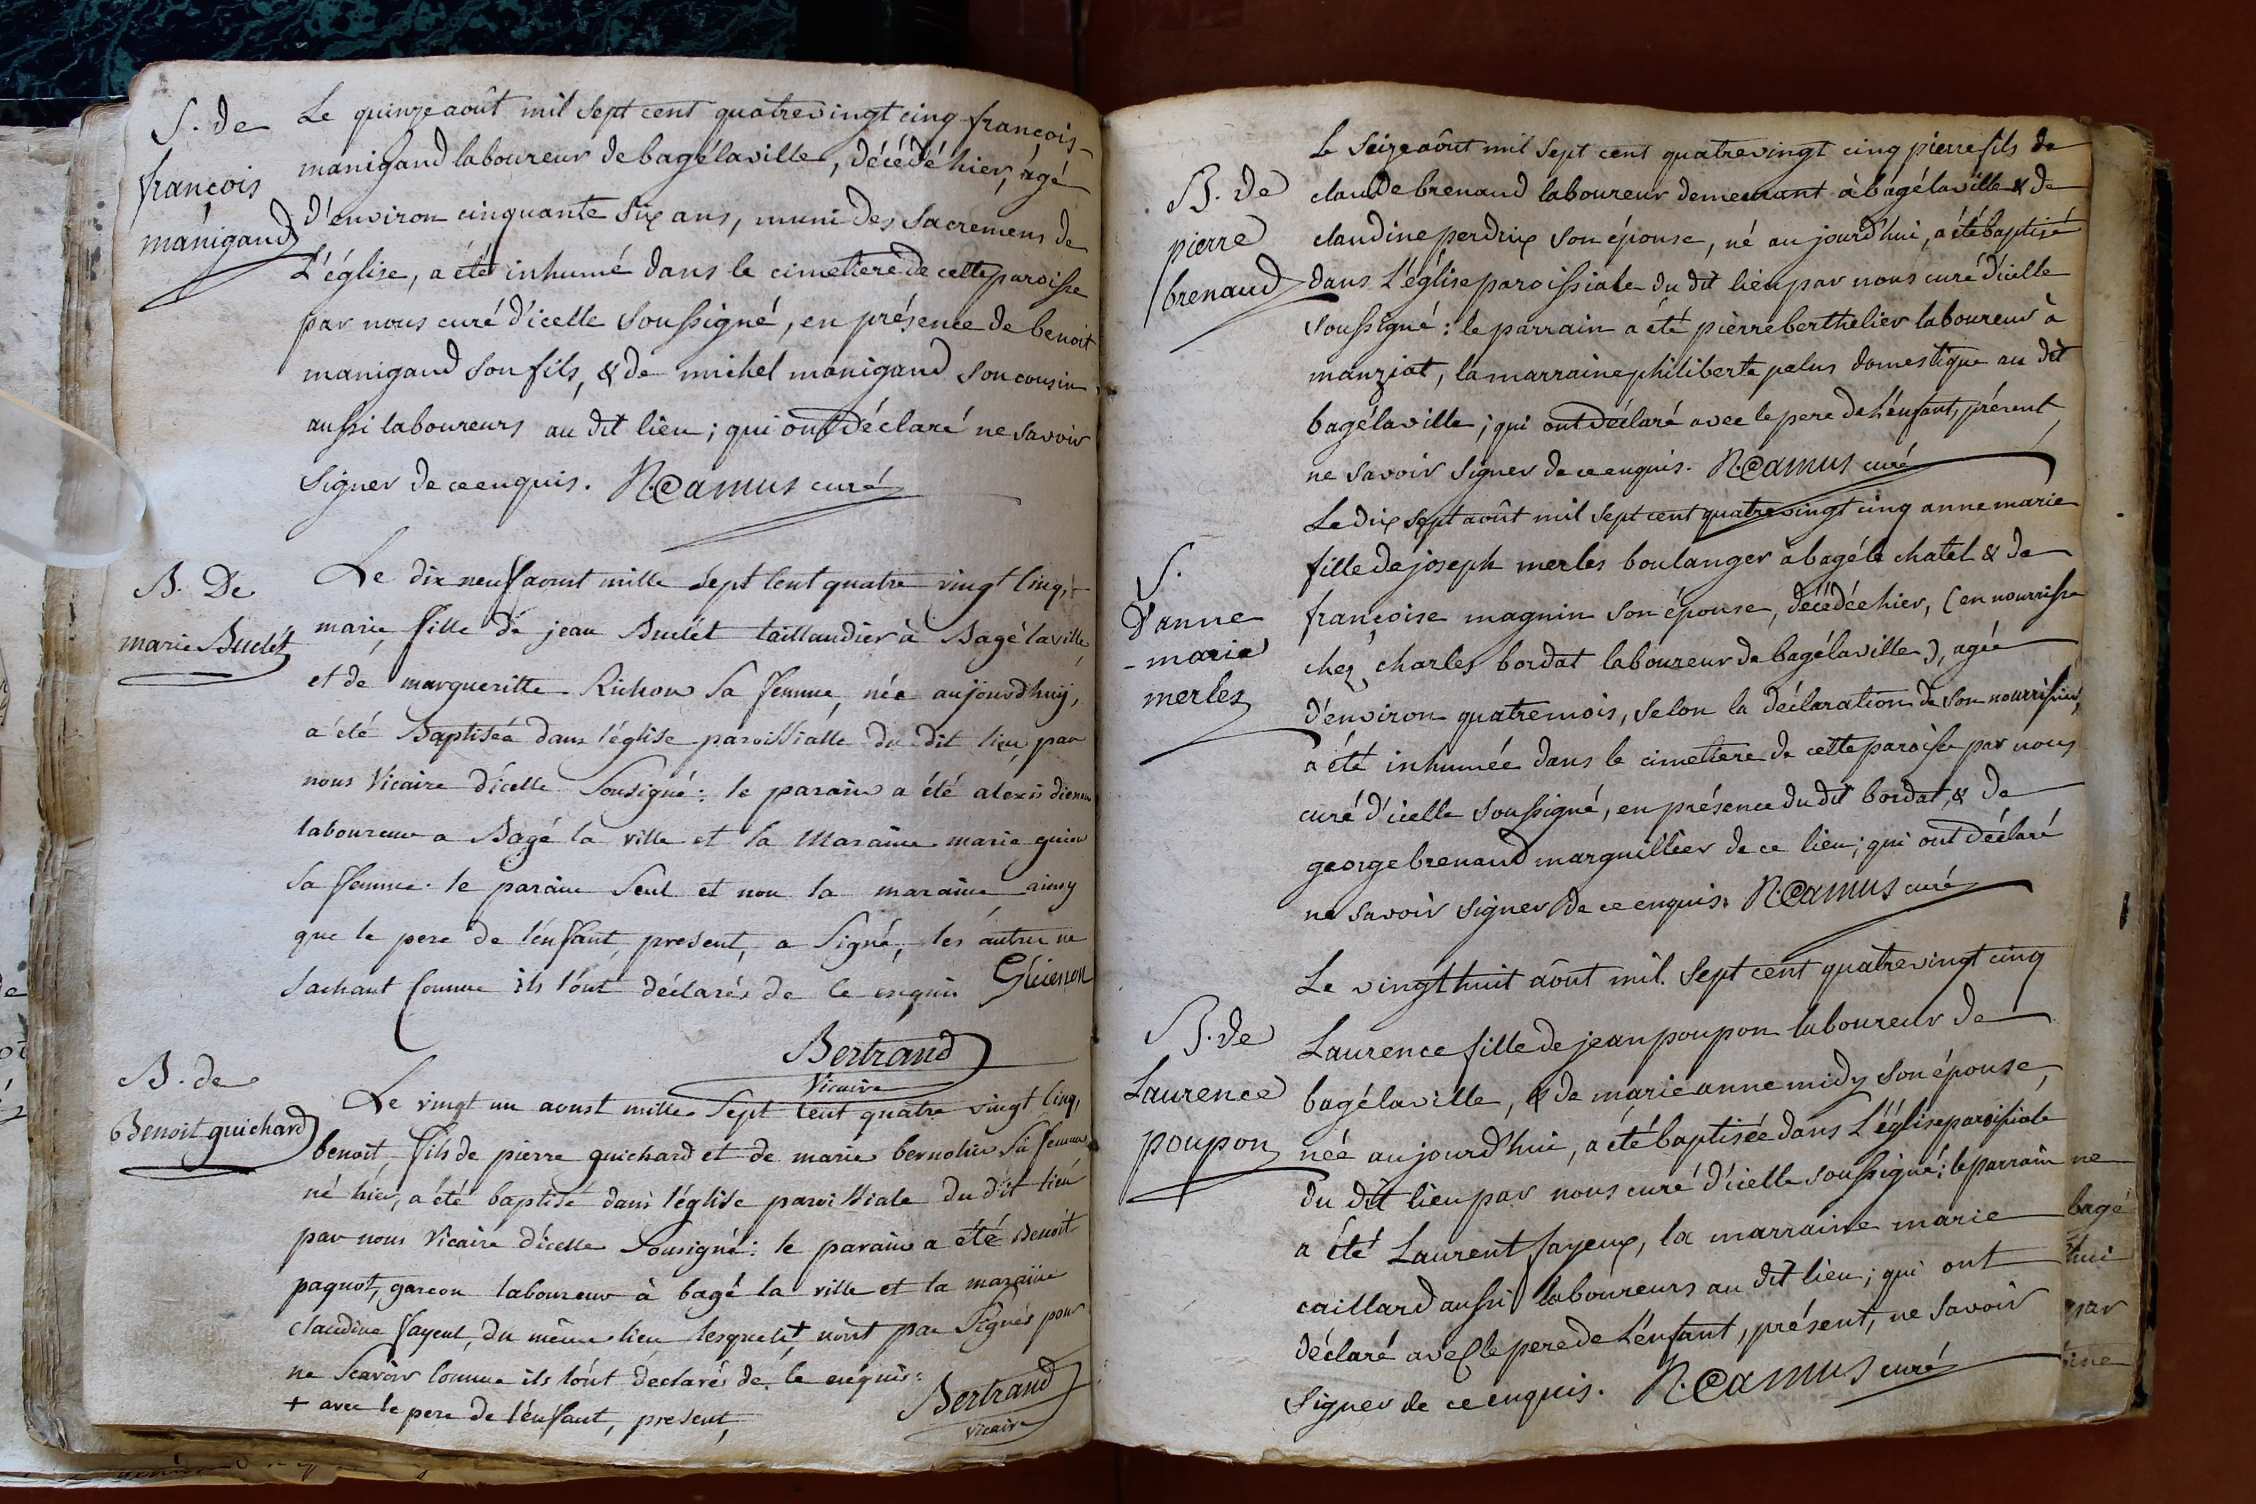 S. de
françois
manigand
Le quinze août mil sept cent quatrevingt cinq françois
manigand laboureur de bagélaville, décédé hier, âgé
d'environ cinquante six ans, muni des sacremens de
L'église, a été inhumé dans le cimetiere de cette paroisse
par nous curé d'icelle soussigné, en présence de benoit
manigand son fils, & de michel manigand son cousin,
aussi laboureurs au dit lieu; qui ont déclaré ne savoir
signer de ce enquis. N. Camus curé
B. De
marie Buclét
Le dix neuf aoust mille sept cent quatre vingt cinq,
marie, fille de jean Buclét taillandier à Bagé laville
et de margueritte Richon sa femme, née aujourdhuy,
a été Baptisée dans l'église paroissialle du dit lieu, par
nous Vicaire d'icelle Sousigné: le parain a été alexis
laboureur a Bagé la ville et la Maraine marie
sa femme. le parain seul et non la maraine ainsy
que le pere de l'enfant, present, a signé, les autres ne
sachant comme ils l'ont déclarés de ce enquis
Bertrand
Vicaire
B. de
Benoit guichard
Le vingt un aoust mille sept cent quatre vingt cinq,
benoit, fils de pierre guichard et de marie bernolin sa femme
né hier, a été baptisé dans l'église paroissiale du dit lieu
par nous Vicaire d'icelle Sousigné: le parain a été Benoit
paquot, garcon laboureur à bagé la ville et la maraine
claudine fayeul, du même lieu lesquels + n'ont pas signés pour
ne scavoir comme ils l'ont déclarés de ce enquis:
+ avec le pere de l'enfant, present,
Bertrand
Vicaire
B. de
pierre
brenaud
Le seize août mil sept cent quatrevingt cinq pierre fils de
claude brenaud laboureur demeurant à bagélaville & de
claudine perdrix son épouse, né aujourd'hui, a été baptisé
dans L'église paroissiale du dit lieu par nous curé d'icelle
soussigné: le parrain a été pierre berthelier laboureur à
manziat, la marraine philiberte palus domestique au dit
bagélaville; qui ont déclaré avec le pere de L'enfant, présent,
ne savoir signer de ce enquis. N. Camus curé
S.
d'anne
-marie
merles
Le dix sept août mil sept cent quatrevingt cinq anne marie
fille de joseph merles boulanger à bagé le chatel & de
françoise magnin son épouse, décédée hier, (en nourrisse
chez charles bordat laboureur de bagélaville), agée
d'environ quatre mois, selon la déclaration de son nourrissier,
a été inhumée dans le cimetiere de cette paroisse par nous
curé d'icelle soussigné, en présence du dit bordat, & de
george brenaud marguillier de ce lieu; qui ont déclaré
ne savoir signer de ce enquis. N. Camus curé
B. de
Laurence
poupon
Le vingt huit août mil sept cent quatrevingt cinq
Laurence fille de jean poupon laboureur de
bagélaville, & de marie anne midy son épouse,
née aujourd'hui, a été baptisée dans L'église paroissiale
du dit lieu par nous curé d'icelle soussigné; le parrain
a été Laurent fayeux, la marraine marie
caillard aussi laboureurs au dit lieu; qui ont
déclaré avec le pere de L'enfant, présent, ne savoir
signer de ce enquis. N. Camus curé
ne
bagé
hui
par